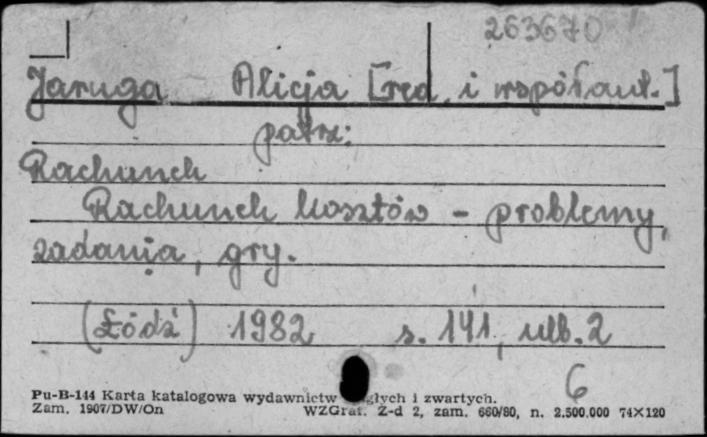 263670
Jaruga Alicja [red. i współaut.]
patrz:
Rachunek
Rachunek kosztów - problemy,
zadania, gry.
(Łódź) 1982 s. 141, nlb. 2
6
Pu-B-144 Karta katalogowa wydawnictw i zwartych.
Zam. 1907/DW/On WZGraf. Z-d 2, zam. 660/80, n. 2.500.000 74×120